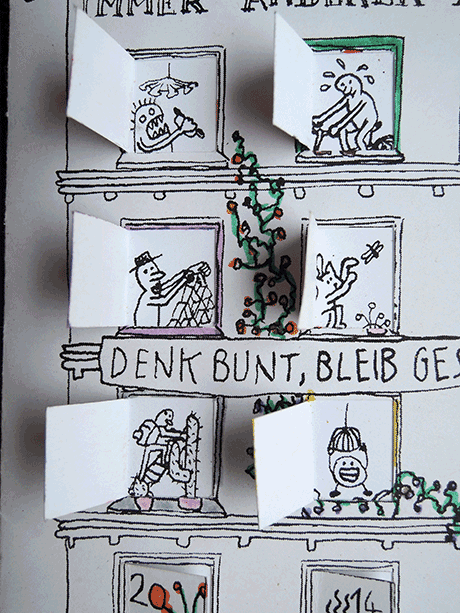 IMMER ANDEREN
DENK BUNT, BLEIB GES
20
14